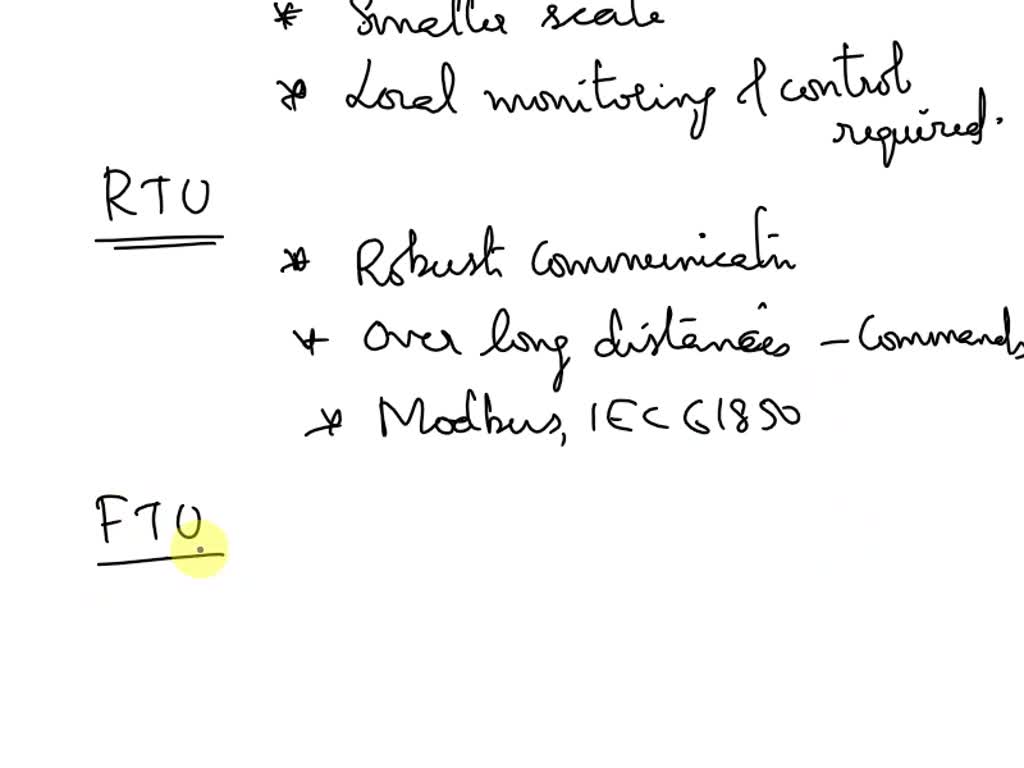 * Smaller scale
* Local monitoring & control
required.
RTU
* Robust Communicatn
* Over long distances - Commands
* Modbus, IEC 61850
FTU